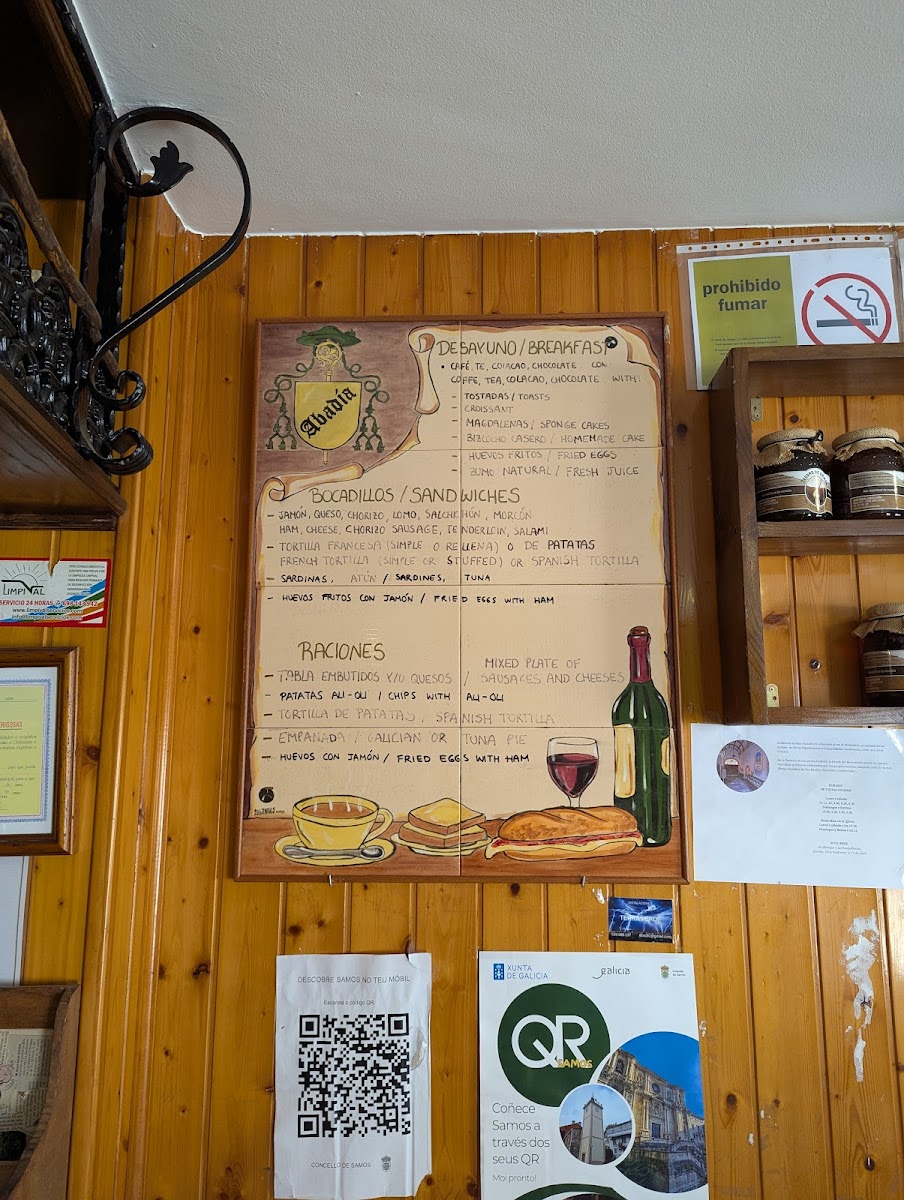 prohibido
fumar
Abadía
DESAYUNO/BREAKFAST
• CAFÉ, TE, COLACAO, CHOCOLATE. CON
COFFE, TEA, COLACAO, CHOCOLATE WITH:
- TOSTADAS/TOASTS
- CROISSANT
- MAGDALENAS/ SPONGE CAKES
- BIZCOCHO CASERO / HOMEMADE CAKE
- HUEVOS FRITOS / FRIED EGGS
- ZUMO NATURAL/ FRESH JUICE
BOCADILLOS/SANDWICHES
- JAMÓN, QUESO, CHORIZO, LOMO, SALCHICHÓN, MORCÓN
HAM, CHEESE, CHORIZO SAUSAGE, TENDERLOIN, SALAMI
- TORTILLA FRANCESA (SIMPLE O RELLENA) O DE PATATAS
FRENCH TORTILLA (SIMPLE OR STUFFED) OR SPANISH TORTILLA
- SARDINAS, ATÚN / SARDINES, TUNA
- HUEVOS FRITOS CON JAMÓN / FRIED EGGS WITH HAM
RACIONES
- TABLA EMBUTIDOS Y/O QUESOS / MIXED PLATE OF
SAUSAGES AND CHEESES
- PATATAS ALI-OLI / CHIPS WITH ALI-OLI
- TORTILLA DE PATATAS, SPANISH TORTILLA
- EMPANADA / GALICIAN OR TUNA PIE
- HUEVOS CON JAMÓN/ FRIED EGGS WITH HAM
LIMPIVAL
SERVICIO 24 HORAS
TERRAVERDE
DESCOBRE SAMOS NO TEU MÓBIL
Escanee o código QR
CONCELLO DE SAMOS
XUNTA
DE GALICIA
galicia
QR
SAMOS
Coñece
Samos a
través dos
seus QR
Moi pronto!